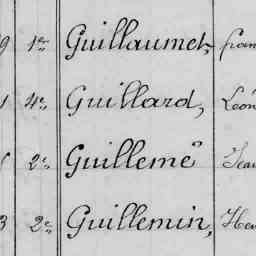 9 1er Guillaumet, fran
1 4e Guillard, Léon
2e Guillemé Jean
3 2e Guillemin, Hen